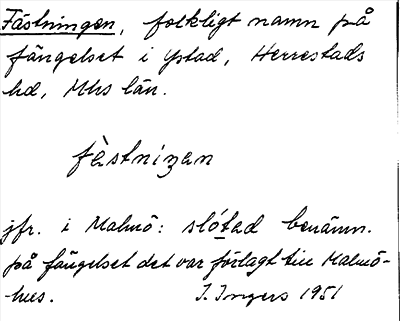 Fästningen, folkligt namn på
fängelset i Ystad, Herrestads
hd, Mhs län.
fèstniŋan
jfr. i Malmö: slótad benämn.
på fängelset det var förlagt till Malmö-
hus.
I. Ingers 1951